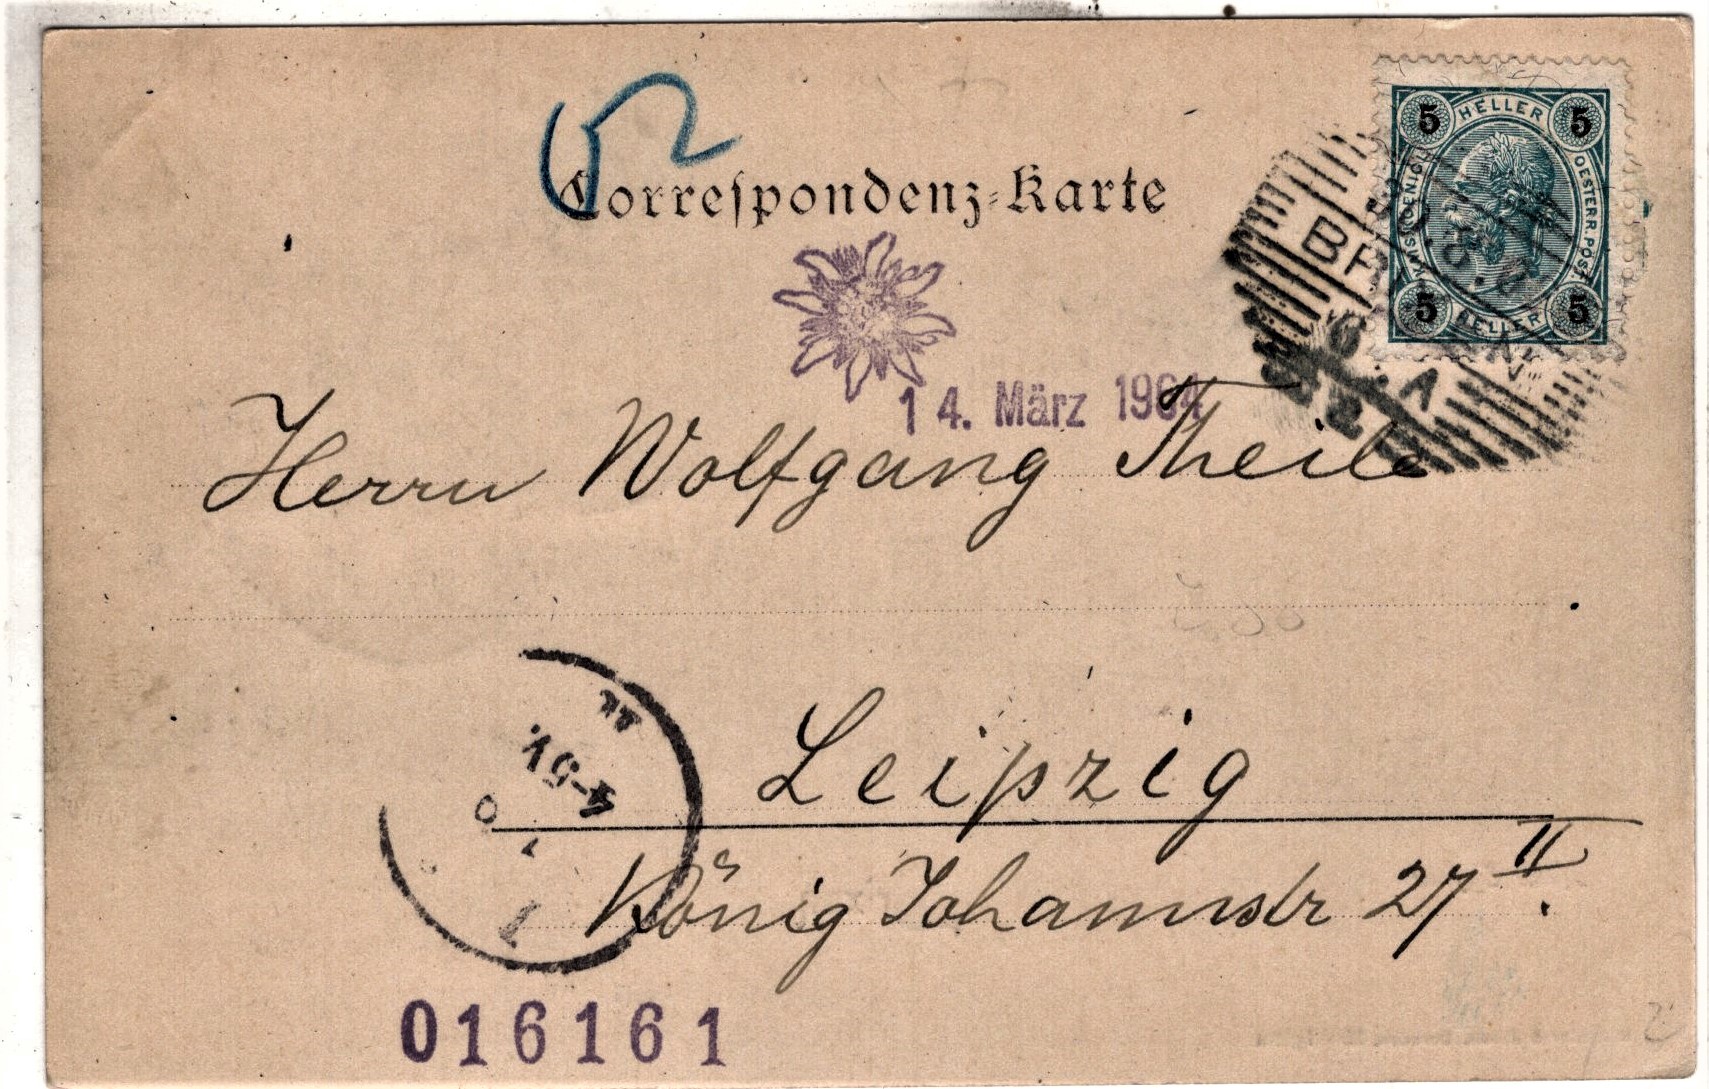 52
Correspondenz-Karte
5 HELLER 5
OESTERR. POST.
5 HELLER 5
14. März 1904
Herrn Wolfgang Theile
Leipzig
4-5 V.
1
König Johannstr 27 II.
016161